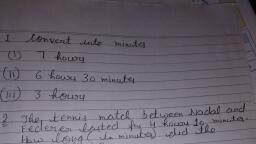 1. Convert into minutes
(i) 7 hours
(ii) 6 hours 30 minutes
(iii) 3 hours
2 The tennis match between Nadal and
Federer lasted for 4 hours 10 minutes.
How long (in minutes) did the